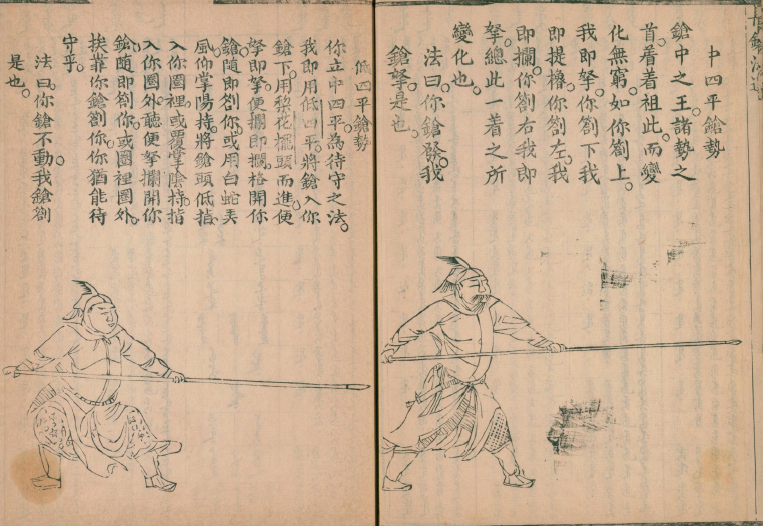 中四平鎗勢
鎗中之王諸勢之
首着着祖此而變
化無窮如你劄上
我即拏你劄下我
即提擼你劄左我
即攔你劄右我即
拏總此一着之所
變化也
法曰你鎗發我
鎗拏是也
低四平鎗勢
你立中四平為待守之法
我即用低四平將鎗入你
鎗下用梨花擺頭而進便
拏即拏便攔即攔格開你
鎗隨即劄你或用白蛇弄
風仰掌陽持將鎗頭低指
入你圈裡或覆掌陰持指
入你圈外聽便拏攔開你
鎗随即劄你或圈裡圈外
挨靠你鎗劄你你猶能待
守乎
法曰你鎗不動我鎗劄
是也